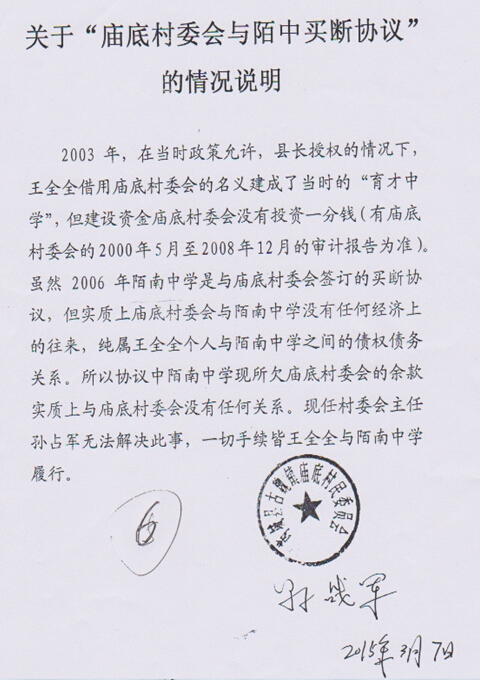 关于“庙底村委会与陌中买断协议”
的情况说明
2003 年，在当时政策允许，县长授权的情况下，
王全全借用庙底村委会的名义建成了当时的“育才中
学”，但建设资金庙底村委会没有投资一分钱（有庙底
村委会的2000年5月至2008年12月的审计报告为准）。
虽然 2006 年陌南中学是与庙底村委会签订的买断协
议，但实质上庙底村委会与陌南中学没有任何经济上
的往来，纯属王全全个人与陌南中学之间的债权债务
关系。所以协议中陌南中学现所欠庙底村委会的余款
实质上与庙底村委会没有任何关系。现任村委会主任
孙占军无法解决此事，一切手续皆王全全与陌南中学
履行。
芮城县古魏镇庙底村民委员会
6
孙战军
2015年3月7日